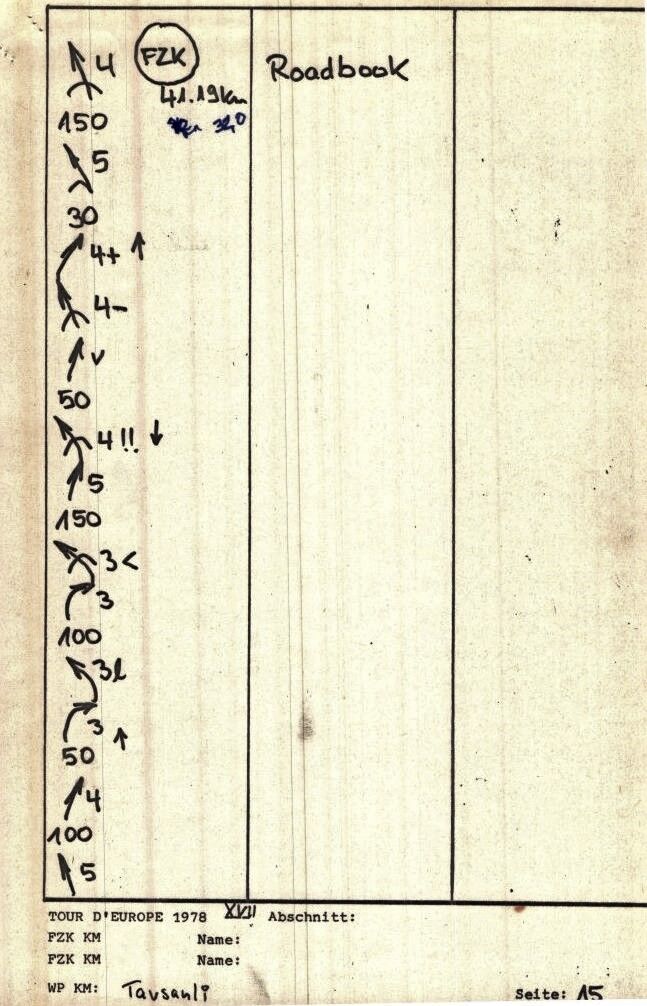 4
FZK
Roadbook
41.19km
150
5
30
4+ ↑
4-
v
50
4 !! ↓
5
150
3<
3
100
3l
3 ↑
50
4
100
5
TOUR D'EUROPE 1978 XVII Abschnitt:
FZK KM Name:
FZK KM Name:
WP KM: Tavsanli
Seite: 15